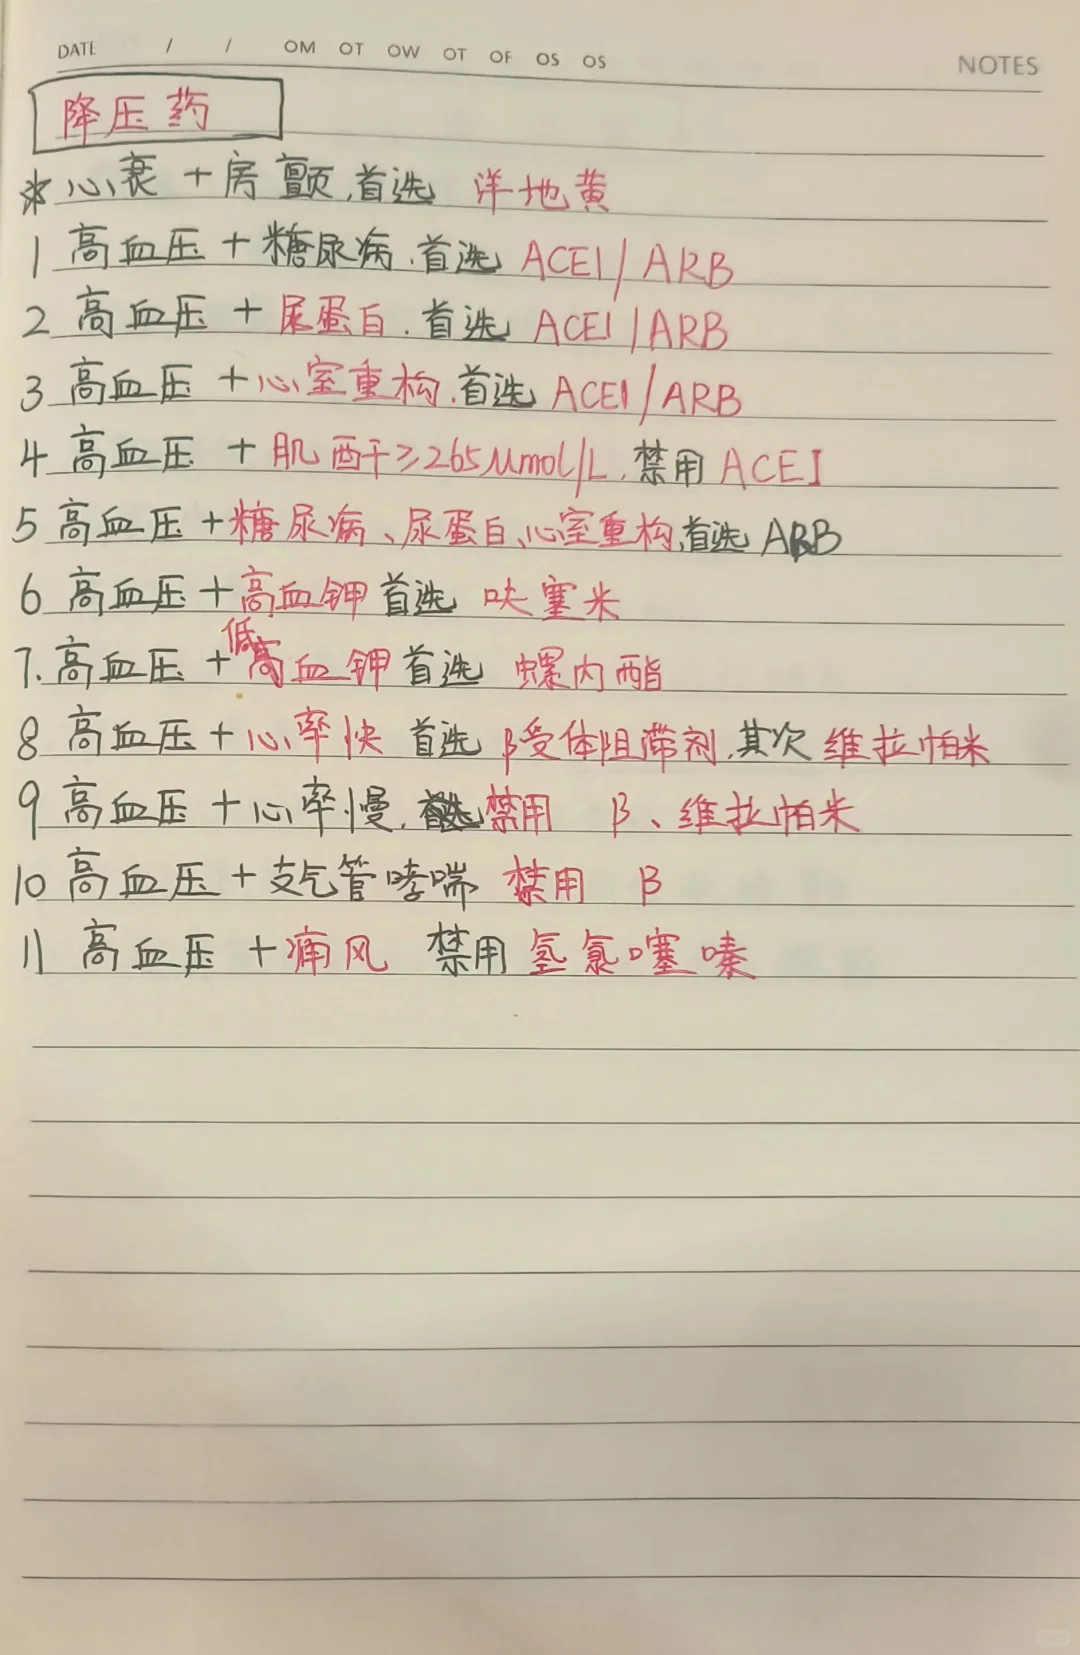 DATE / / OM OT OW OT OF OS OS NOTES
降压药
*心衰+房颤,首选 洋地黄
1 高血压+糖尿病.首选 ACEI/ARB
2 高血压+尿蛋白.首选 ACEI/ARB
3 高血压+心室重构.首选ACEI/ARB
4 高血压+肌酐≥265μmol/L.禁用ACEI
5 高血压+糖尿病、尿蛋白、心室重构,首选ARB
6 高血压+高血钾首选 呋塞米
7.高血压+低血钾首选 螺内酯
8 高血压+心率快 首选β受体阻滞剂.其次维拉帕米
9 高血压+心率慢.禁用 β、维拉帕米
10 高血压+支气管哮喘 禁用 β
11 高血压+痛风 禁用氢氯噻嗪